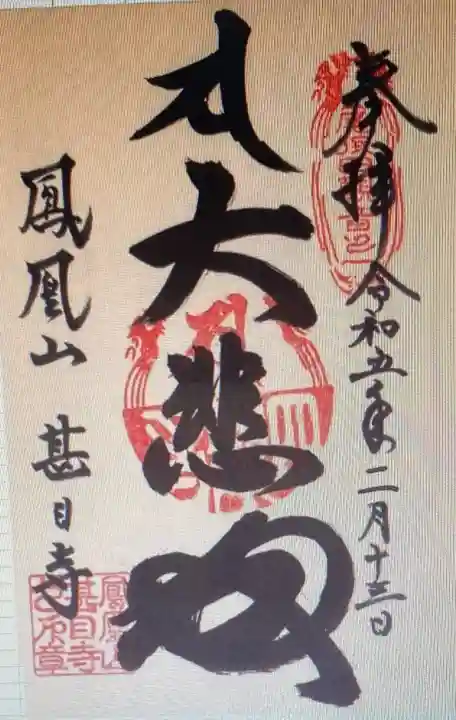 奉拝 令和五年二月十三日
大悲殿
鳳凰山 甚目寺
鳳凰山
甚目寺
之印章